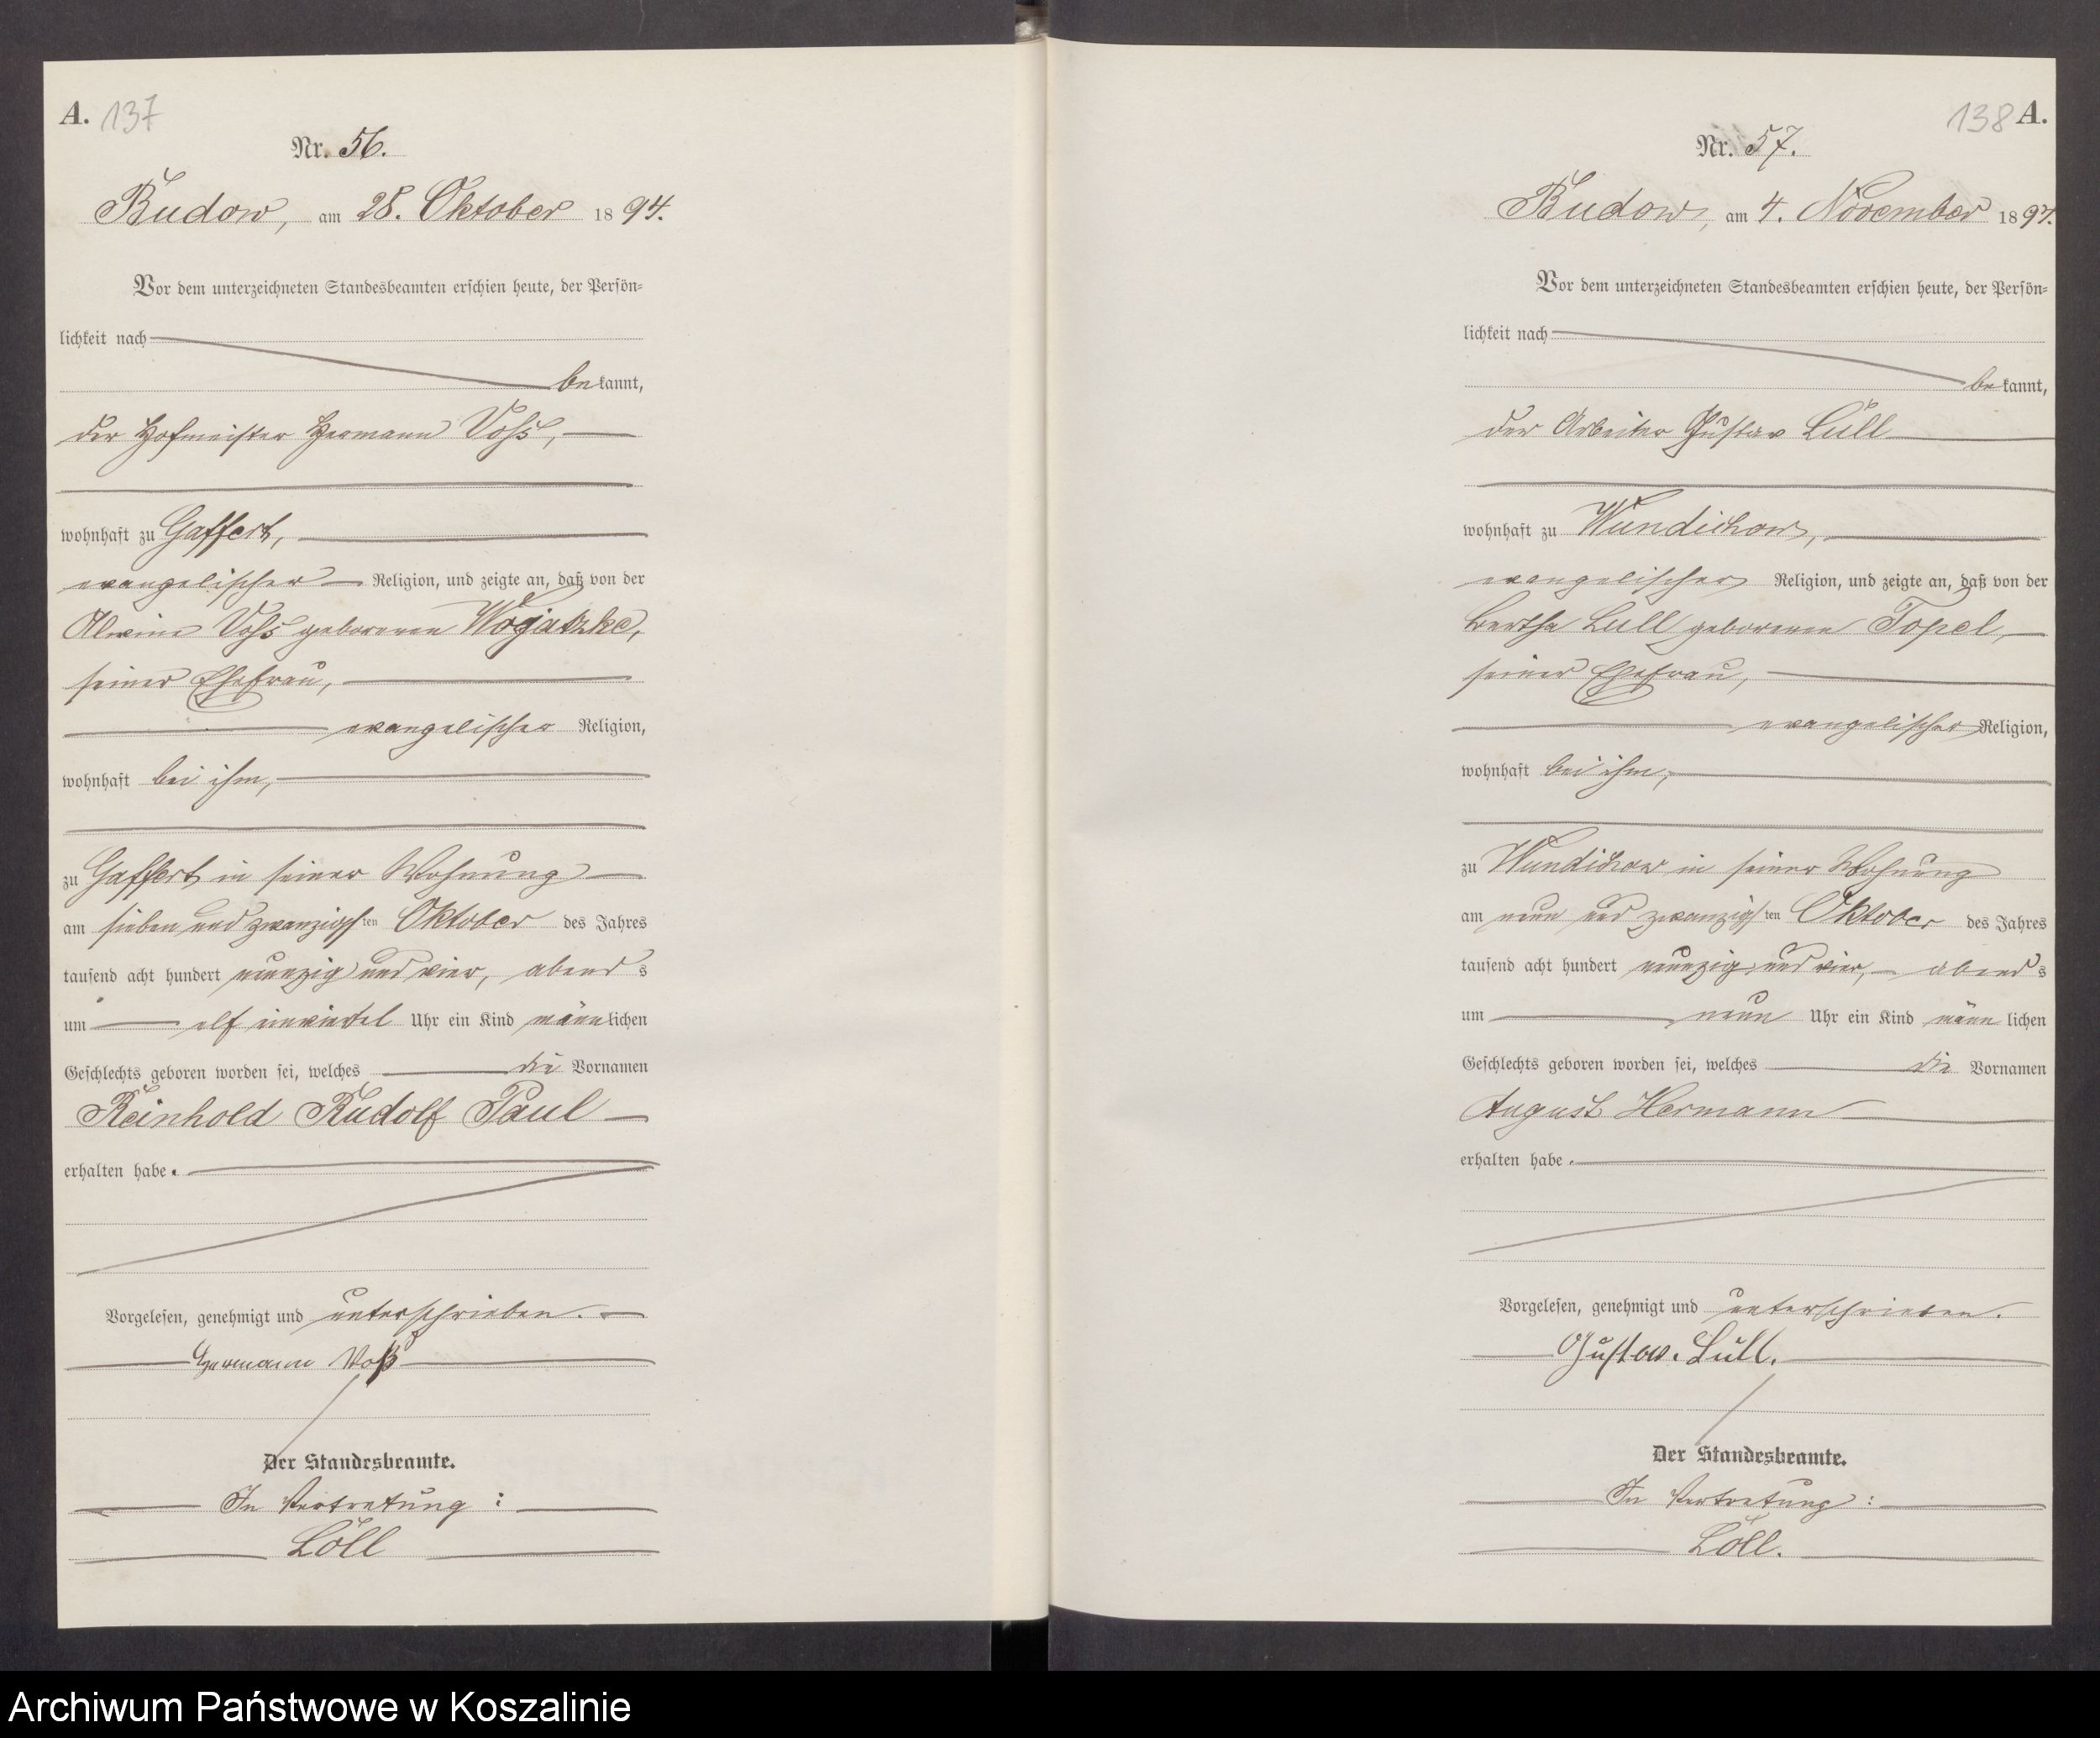 A. 137
Nr. 56.
Budow, am 28. Oktober 1894.
Vor dem unterzeichneten Standesbeamten erschien heute, der Persön-
lichkeit nach
bekannt,
der Hofmeister Hermann Voss,
wohnhaft zu Gaffert,
evangelischer Religion, und zeigte an, daß von der
Alwine Voss geborenen Wojatzke,
seiner Ehefrau,
evangelischer Religion,
wohnhaft bei ihm,
zu Gaffert in seiner Wohnung
am sieben und zwanzigsten Oktober des Jahres
tausend acht hundert neunzig und vier, abends
um elf einviertel Uhr ein Kind männlichen
Geschlechts geboren worden sei, welches die Vornamen
Reinhold Rudolf Paul
erhalten habe.
Vorgelesen, genehmigt und unterschrieben.
Hermann Voß
Der Standesbeamte.
In Vertretung:
Löll
138 A.
Nr. 57.
Budow, am 4. November 1894.
Vor dem unterzeichneten Standesbeamten erschien heute, der Persön-
lichkeit nach
bekannt,
der Arbeiter Gustav Lüll
wohnhaft zu Wundichow,
evangelischer Religion, und zeigte an, daß von der
Bertha Lüll geborenen Topel,
seiner Ehefrau,
evangelischer Religion,
wohnhaft bei ihm,
zu Wundichow in seiner Wohnung
am neun und zwanzigsten Oktober des Jahres
tausend acht hundert neunzig und vier, abends
um neun Uhr ein Kind männlichen
Geschlechts geboren worden sei, welches die Vornamen
August Hermann
erhalten habe.
Vorgelesen, genehmigt und unterschrieben.
Gustav. Lüll.
Der Standesbeamte.
In Vertretung:
Löll.
Archiwum Państwowe w Koszalinie